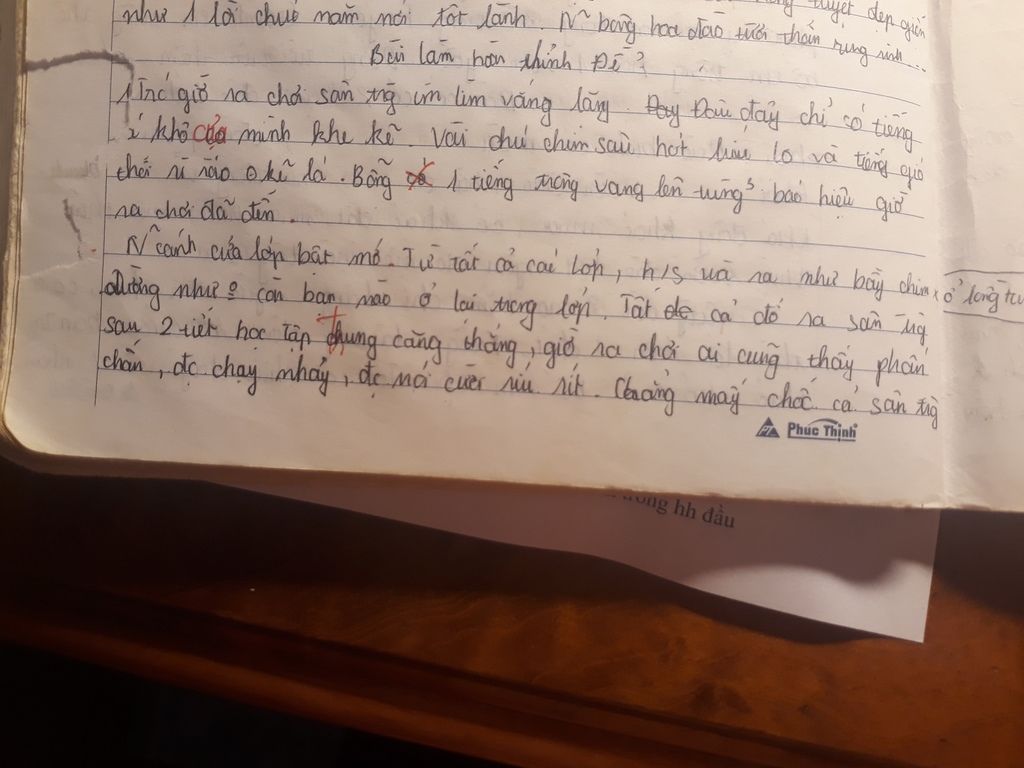 tuyệt đẹp giống
như 1 lời chúc năm mới tốt lành. N~ bông hoa đào tươi thắm rung rinh...
Bài làm hoàn thỉnh Đề 2
Trc giờ ra chơi sân trg im lìm vắng lặng. Đay Đau đấy chỉ có tiếng
ì khô của mình khe kẽ. Vài chú chim sâu hót líu lo và tiếng gió
thổi rì rào kẽ lá. Bỗng 1 tiếng trống vang lên tùng3 báo hiệu giờ
ra chơi đã đến.
N~ cánh cửa lớp bật mở. Từ tất cả các lớp, h/s ùa ra như bầy chim x ổ lồng
dường như 0 còn bạn nào ở lại trong lớp. Tất cả đổ ra sân trg
sau 2 tiết học tập chung căng thẳng, giờ ra chơi ai cũng thấy phấn
chấn, đc chạy nhảy, đc nói cười ríu rít. Chẳng mấy chốc cả sân trg
PT Phúc Thịnh
trong hh đầu